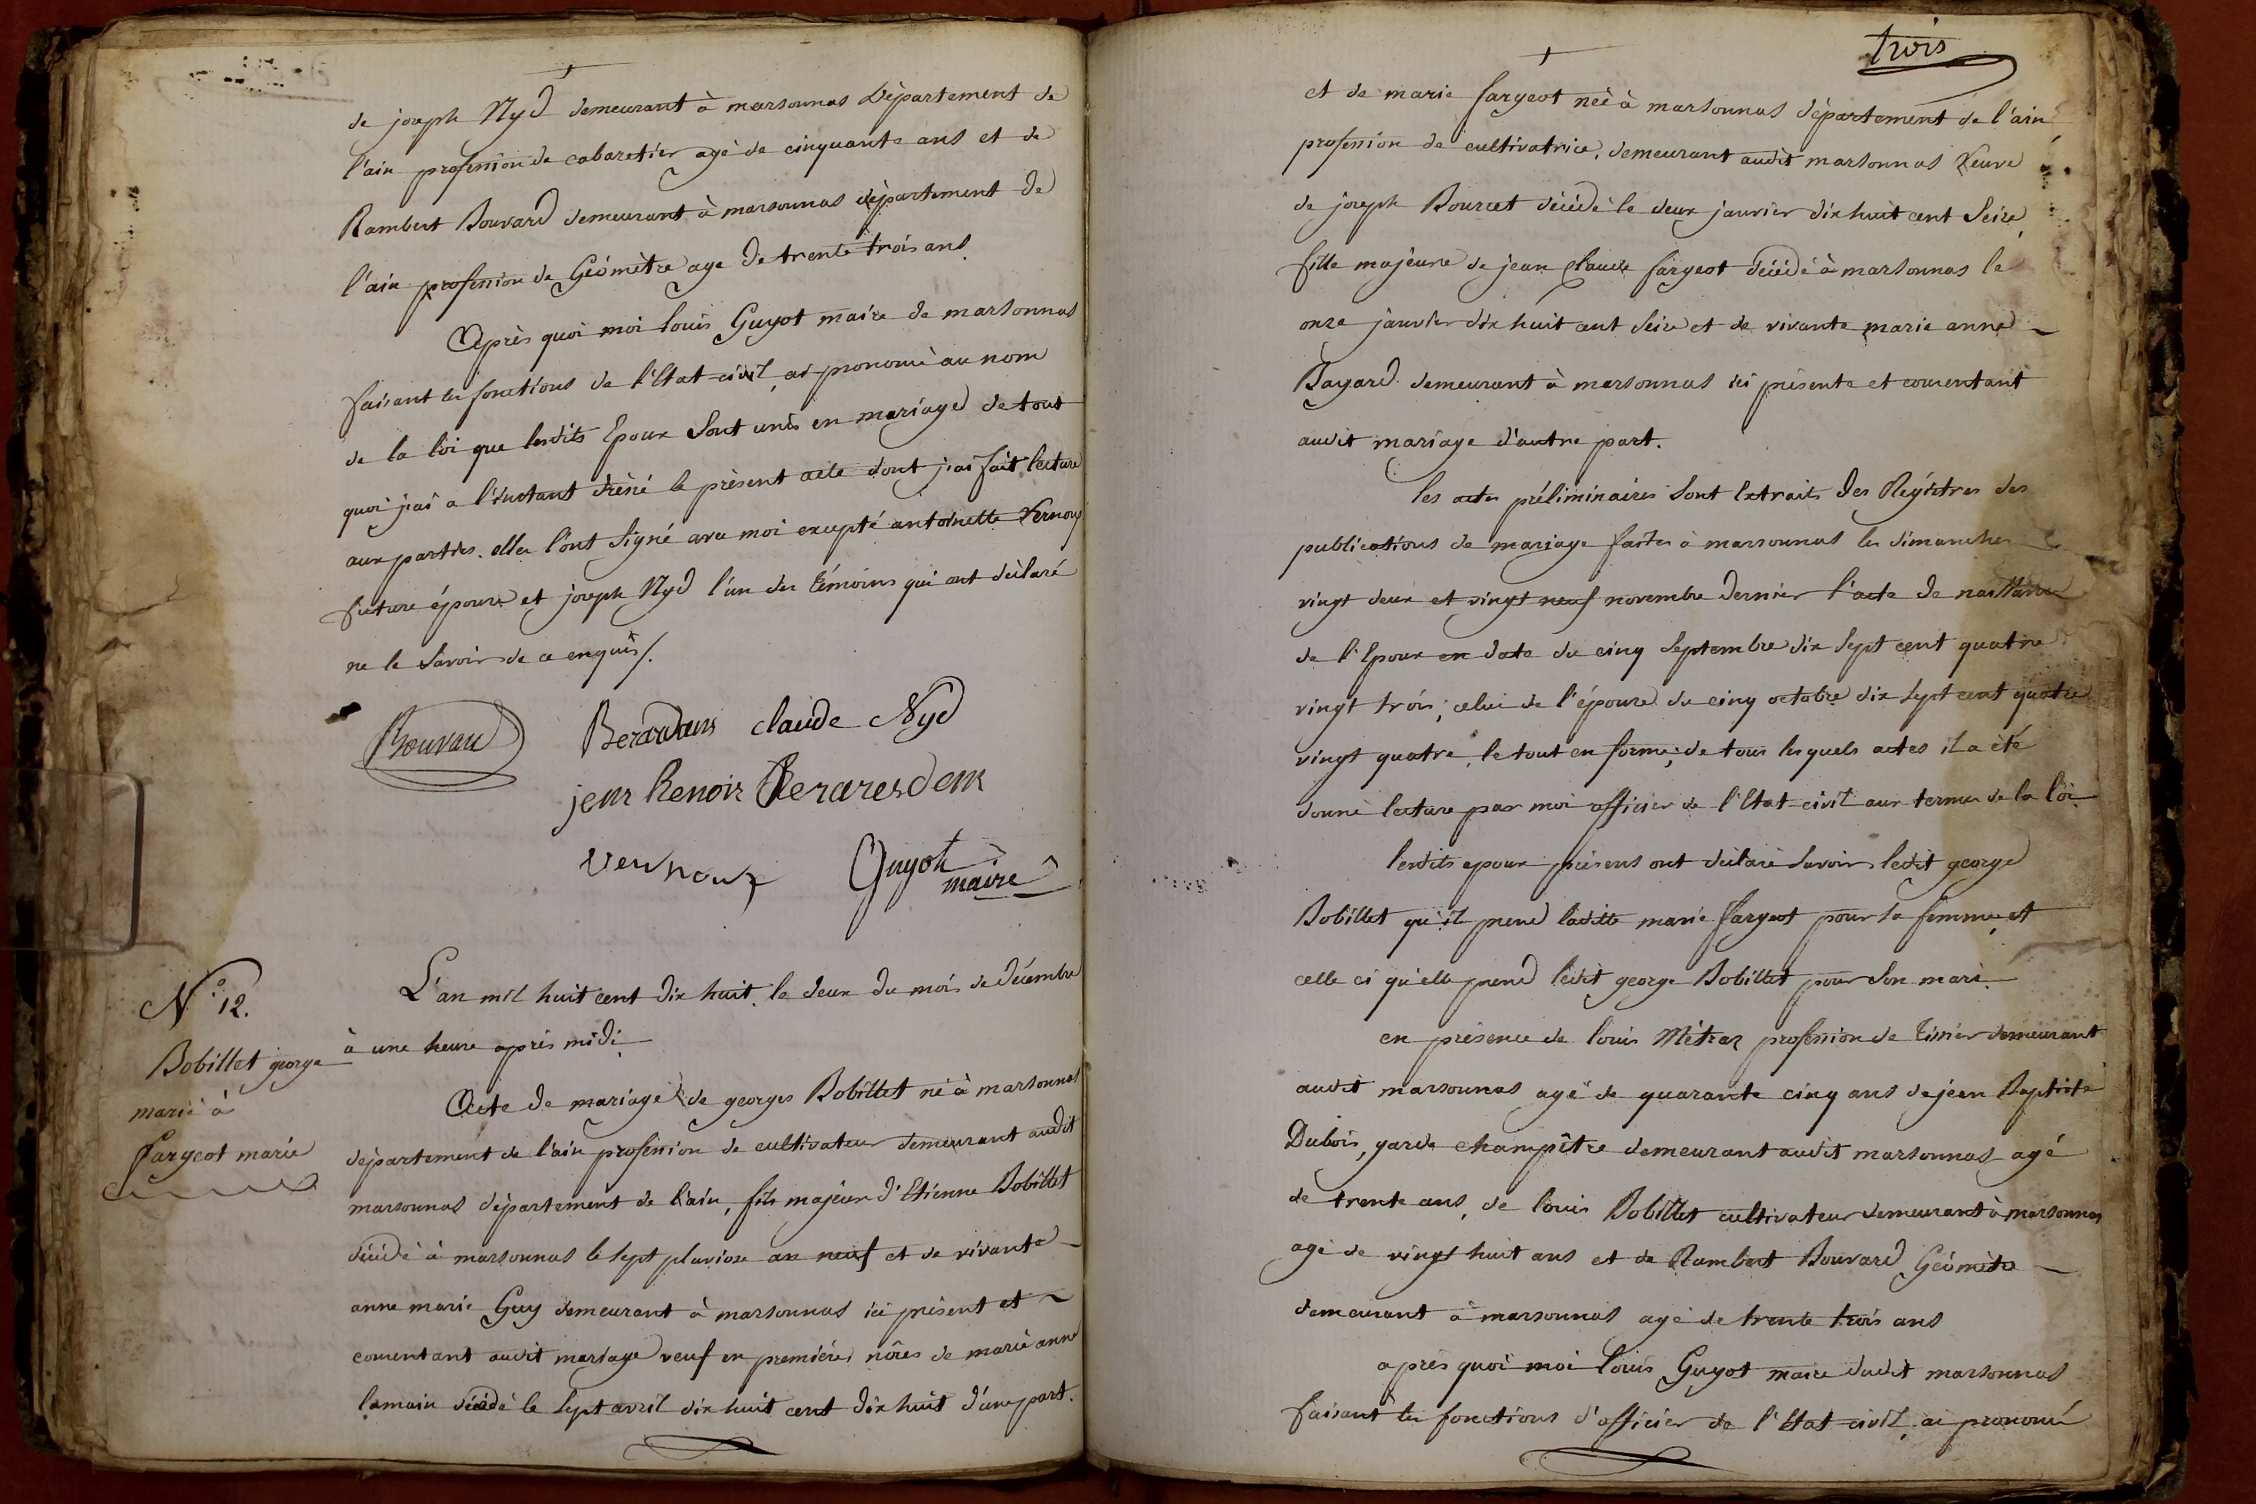 de joseph Nyd demeurant à marsonnas Département de
l'ain profession de cabaretier agé de cinquante ans et de
Rambert Bouvard demeurant à marsonnas département de
l'ain profession de Géomètre age de trente trois ans.
Après quoi moi louis Guyot maire de marsonnas
faisant les fonctions de l'Etat-civil, ai prononcé au nom
de la loi que lesdits Epoux sont unis en mariage de tout
quoi j'ai a l'instant drésé le présent acte dont j'ai fait lecture
aux parties. elles l'ont signé avec moi excepté antoinette Vernoux
future épouse et joseph Nyd l'un des témoins qui ont déclaré
ne le savoir de ce enquis/.
Bouvard Berardans claude Nyd
jean Renoir
vernoux Guyot
maire
L'an mil huit cent dix huit, le deux du mois de décembre
à une heure après midi
N.° 12.
Bobillet george
marié à
fargeot marie
Acte de mariage de georges Bobillet né à marsonnas
département de l'ain profession de cultivateur demeurant audit
marsonnas département de l'ain, fils majeur d'Etienne Bobillet
décédé à marsonnas le sept pluviose an neuf et de vivante
anne marie Guy demeurant à marsonnas ici présent et
consentant audit mariage veuf en première nôces de marie anne
lamain décédé le sept avril dix huit cent dix huit d'une part.
trois
et de marie fargeot née à marsonnas département de l'ain,
profession de cultivatrice, demeurant audit marsonnas Veuve
de joseph Bourcet décédé le deux janvier dix huit cent Seize,
fille majeure de jean claude fargeot décédé à marsonnas le
onze janvier dix huit cent Seize et de vivante marie anne
Bayard demeurant à marsonnas ici présente et consentant
audit mariage d'autre part.
les actes préliminaires sont Extraits des Régistres des
publications de mariage faites à marsonnas les dimanches
vingt deux et vingt neuf novembre dernier l'acte de naissance
de l'Epoux en date du cinq Septembre dix sept cent quatre
vingt trois; celui de l'épouse du cinq octobre dix sept cent quatre
vingt quatre, le tout en forme; de tous lesquels actes il a été
donné lecture par moi officier de l'Etat-civil aux termes de la loi
lesdits epoux présens ont déclaré savoir, ledit george
Bobillet qu'il prend ladite marie fargeot pour sa femme, et
celle ci qu'elle prend ledit george Bobillet pour son mari
en présence de louis Métraz profession de Tissier demeurant
audit marsonnas agé de quarante cinq ans de jean Baptiste
Dubois, garde champêtre demeurant audit marsonnas agé
de trente ans, de louis Bobillet cultivateur demeurant à marsonnas
agé de vingt huit ans et de Rambert Bouvard Géomètre
demeurant à marsonnas agé de trente trois ans
après quoi moi louis Guyot maire dudit marsonnas
faisant les fonctions d'officier de l'Etat-civil, ai prononcé